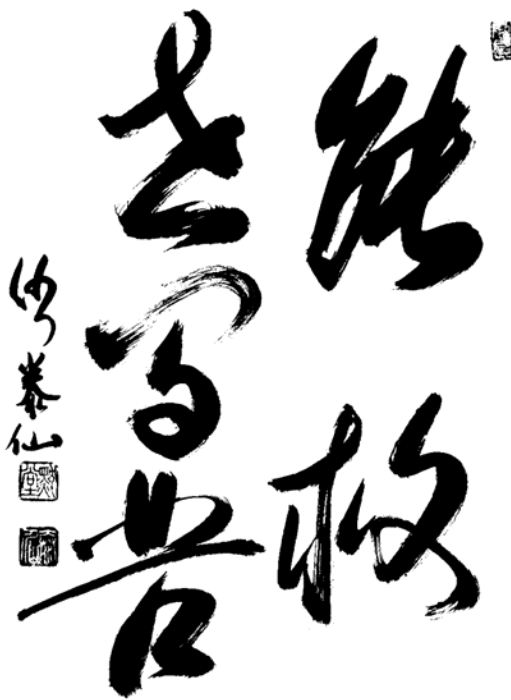 能救
世間苦
泰仙